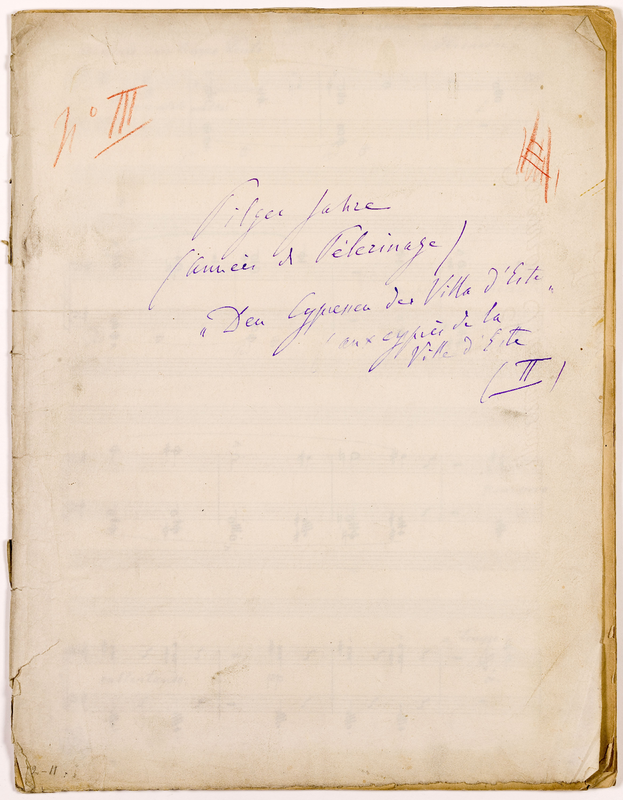 No III
Pilger Jahre
(Années de Pélerinage)
„Den Cypressen der Villa d'Este„
(aux cyprès de la
Villa d'Este
(II)